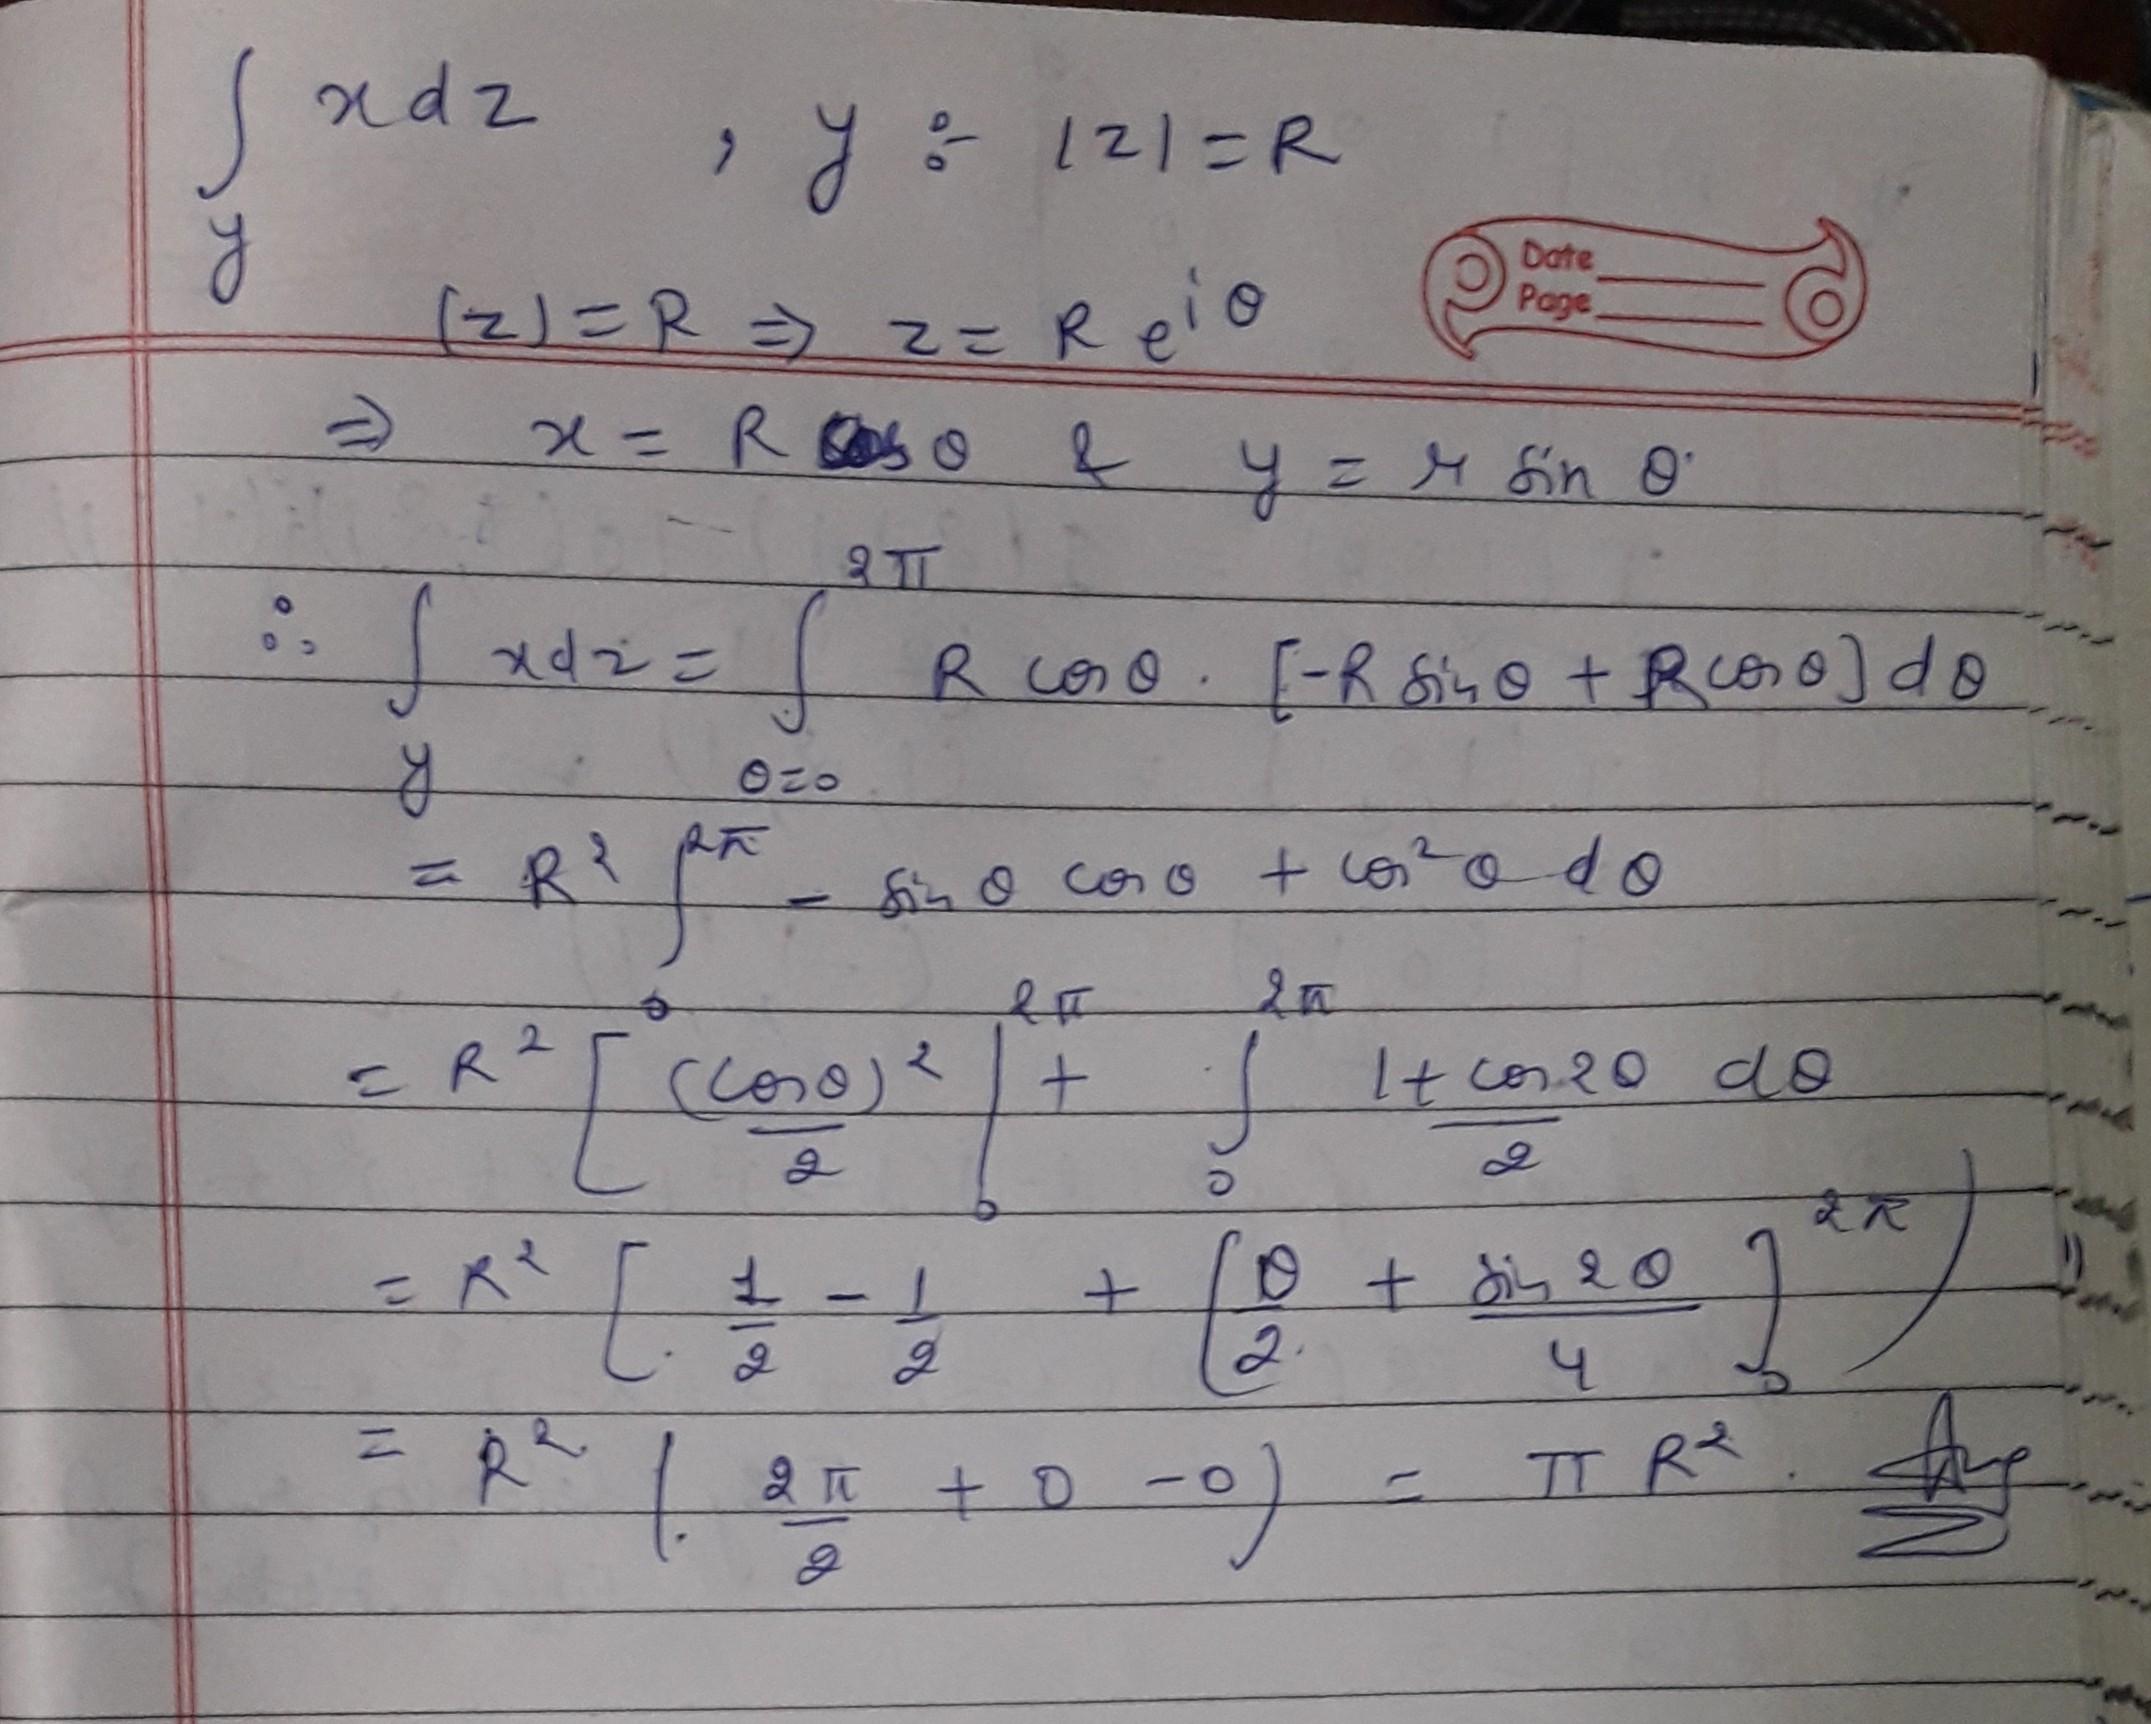 ∫_y x dz , y ÷ |z| = R
Date
Page
|z| = R ⇒ z = R e^{iθ}
⇒ x = R Cos θ & y = r sin θ
∴ ∫_y x dz = ∫_{θ=0}^{2π} R cos θ . [-R sin θ + R cos θ] dθ
= R² ∫_0^{2π} - sin θ cos θ + cos² θ dθ
= R² [ (cos θ)²/2 |_0^{2π} + ∫_0^{2π} 1 + cos 2θ / 2 dθ )
= R² [ 1/2 - 1/2 + [ θ/2 + sin 2θ / 4 ]_0^{2π}
= R² ( 2π/2 + 0 - 0 ) = π R² . Ans